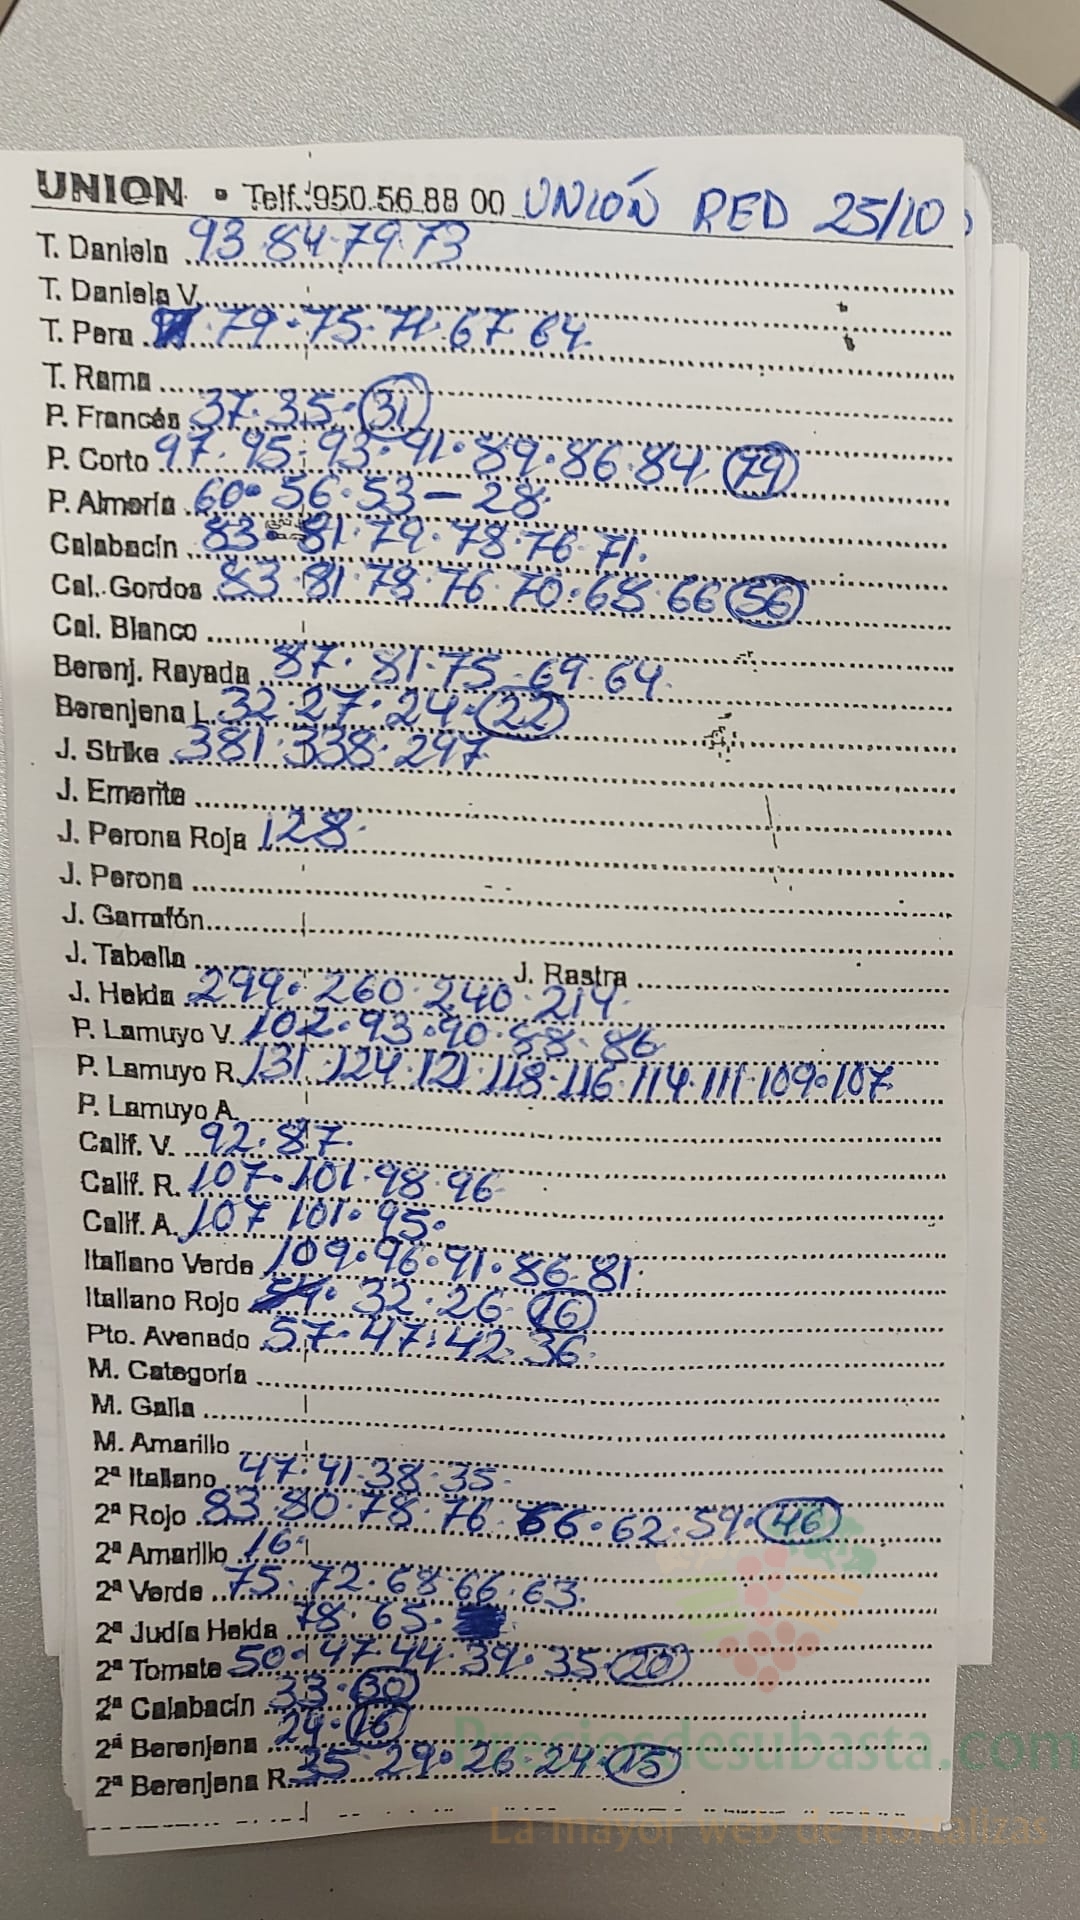 UNION • Telf.:950.56.88 00 UNIÓN RED 25/10
T. Daniela 93.84.79.73
T. Daniela V.
T. Pera .79.75.71.67 64.
T. Rama
P. Francés 37.35.(31)
P. Corto 97.95.93.91.89.86.84.(79)
P. Almería 60.56.53-28.
Calabacín 83.81.79.78.76.71.
Cal. Gordos 83.81.78.76.70.68.66(56)
Cal. Blanco
Berenj. Rayada 87.81.75.69.64.
Berenjena L. 32.27.24.(22)
J. Strike 381.338.297
J. Emerite
J. Perona Roja 128.
J. Perona
J. Garrafón
J. Tabella J. Rastra
J. Helda 299.260.240.214.
P. Lamuyo V. 102.93.90.88.86
P. Lamuyo R. 131.124.121.118.116.114.111.109.107
P. Lamuyo A.
Calif. V. 92.87.
Calif. R. 107.101.98.96
Calif. A. 107 101.95.
Italiano Verde 109.96.91.86.81.
Italiano Rojo .32.26.(16)
Pto. Avenado 57.47.42.36.
M. Categoría
M. Galia
M. Amarillo
2ª Italiano 47.41.38.35.
2ª Rojo 83.80.78.76.66.62.59.(46)
2ª Amarillo 16.
2ª Verde 75.72.68.66.63.
2ª Judía Helda 78.65.
2ª Tomate 50.47.44.39.35.(20)
2ª Calabacín 33.(30)
2ª Berenjena 24.(16)
2ª Berenjena R. 35 29.26.24.(15)
Preciosdesubasta.com
La mayor web de hortalizas